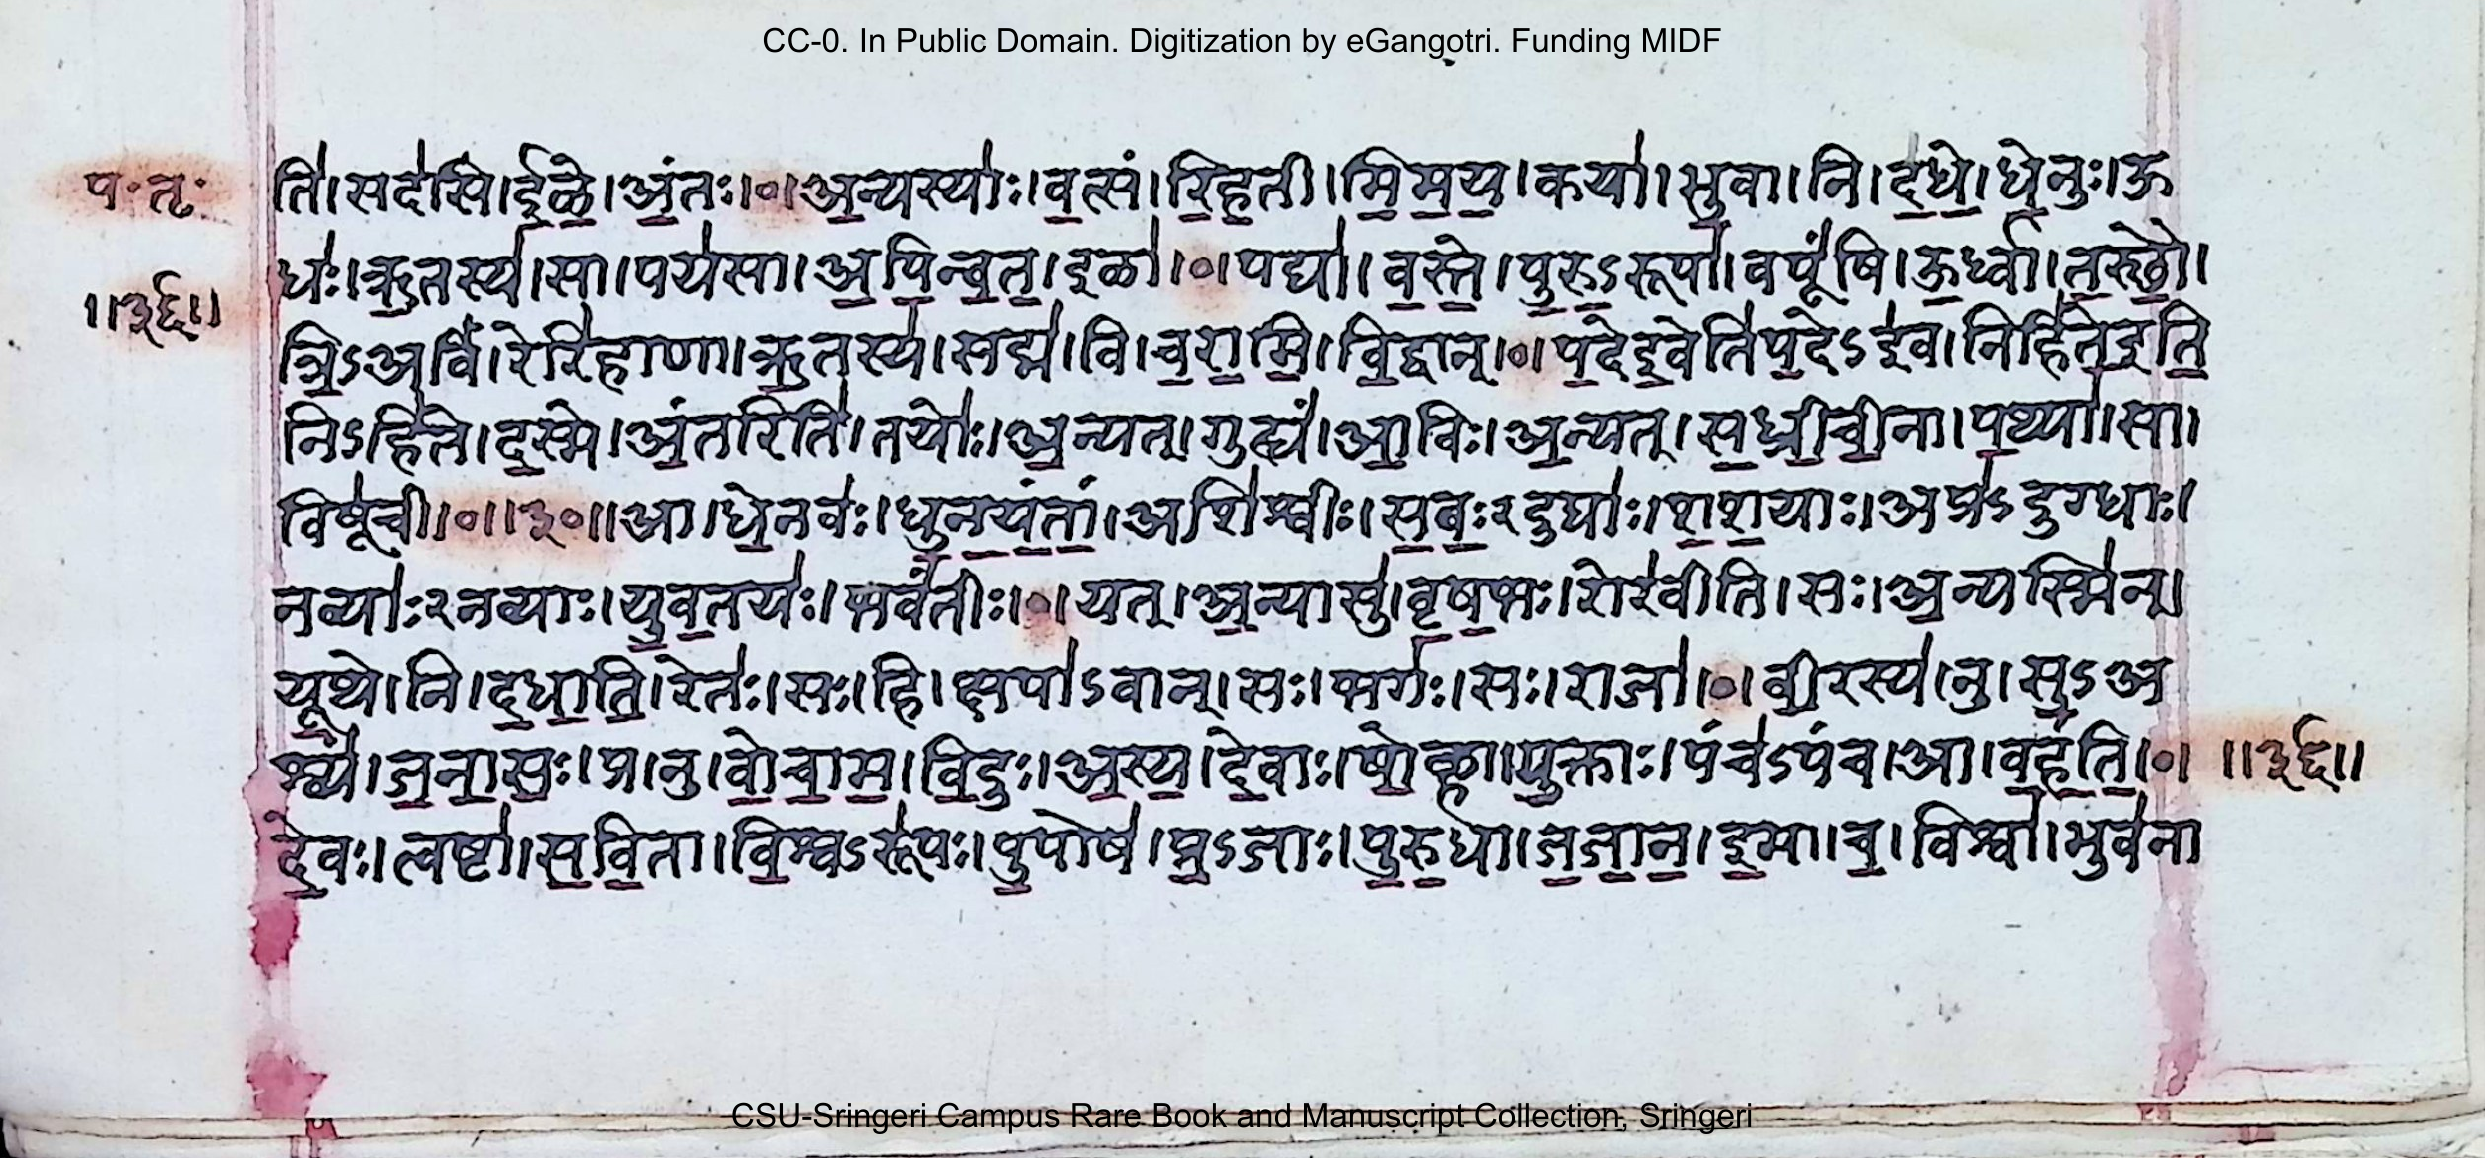 CC-0. In Public Domain. Digitization by eGangotri. Funding MIDF
प॰तृ॰
ति॑।सद॑सि।ई॒ळे॒।अं॒तः।०।अ॒न्यस्याः॑।व॒त्सं।रि॒ह॒ती।मि॒मा॒य॒।कया॑।भु॒वा।नि।द॒धे॒।धे॒नुः।ऊ
धः॑।ऋ॒तस्य॑।सा।पय॑सा।अ॒पि॒न्व॒त॒।इळा॑।०।पद्या॑।व॒स्ते॒।पु॒रु॒ऽरूपा॑।वपूं॑षि।ऊ॒र्ध्वा।त॒स्थौ॒।
॥३६॥
त्रि॒ऽअविं॑।रेरि॑हाणा।ऋ॒तस्य॑।सद्म॑।वि।च॒रा॒मि॒।वि॒द्वान्।०।प॒देइ॒वेति॑प॒देऽइ॑व।निहि॑ते॒इति॒
निऽहि॑ते।द॒स्मे।अं॒तरिति॑।तयोः॑।अ॒न्यत्।गुह्यं॑।आ॒विः।अ॒न्यत्।स॒ध्री॒ची॒ना।प॒थ्या॑।सा।
विषू॑ची।०॥३०॥आ।धे॒नवः॑।धु॒न॒यं॒तां॒।अशि॑श्वीः।स॒बः॒२दुघाः॑।श॒श॒याः।अप्र॑ऽदुग्धाः।
नव्याः॑२नव्याः।यु॒व॒तयः॑।भवं॑तीः।०।यत्।अ॒न्यासु॑।वृ॒ष॒भः।रोर॑वीति।सः।अ॒न्यस्मि॑न्।
यूथे।नि।द॒धा॒ति॒।रेतः॑।सः।हि।क्षपा॑ऽवान्।सः।भगः॑।सः।राजा॑।०।वी॒रस्य॑।नु।सु॒ऽअ
श्व्यं॑।ज॒ना॒सः॒।प्र।नु।वो॒चा॒म॒।वि॒दुः।अ॒स्य॒।दे॒वाः।षो॒ळ्हा।यु॒क्ताः।पंच॑ऽपंच।आ।व॒हं॒ति॒।०।॥३६॥
दे॒वः।त्वष्टा॑।स॒वि॒ता।वि॒श्वऽरू॑पः।पु॒पोष॑।प्र॒ऽजाः।पु॒रु॒धा।ज॒जा॒न॒।इ॒मा।च॒।विश्वा॑।भुव॑ना
CSU-Sringeri Campus Rare Book and Manuscript Collection, Sringeri